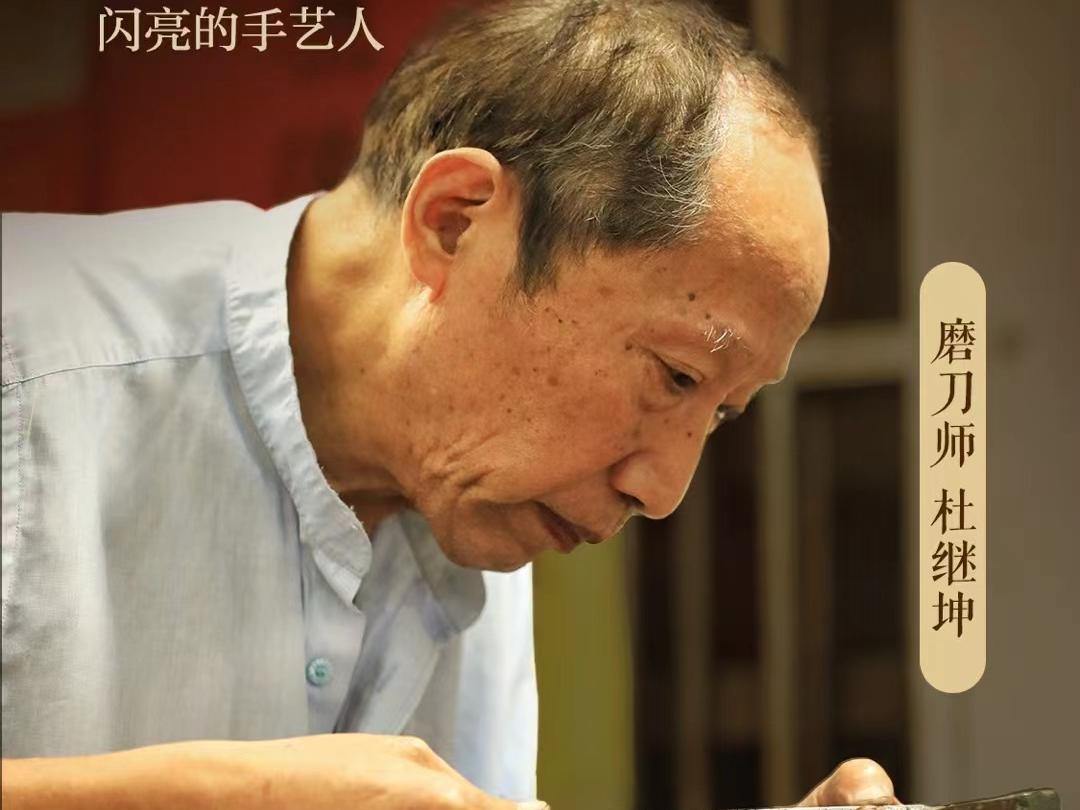 闪亮的手艺人
磨刀师 杜继坤